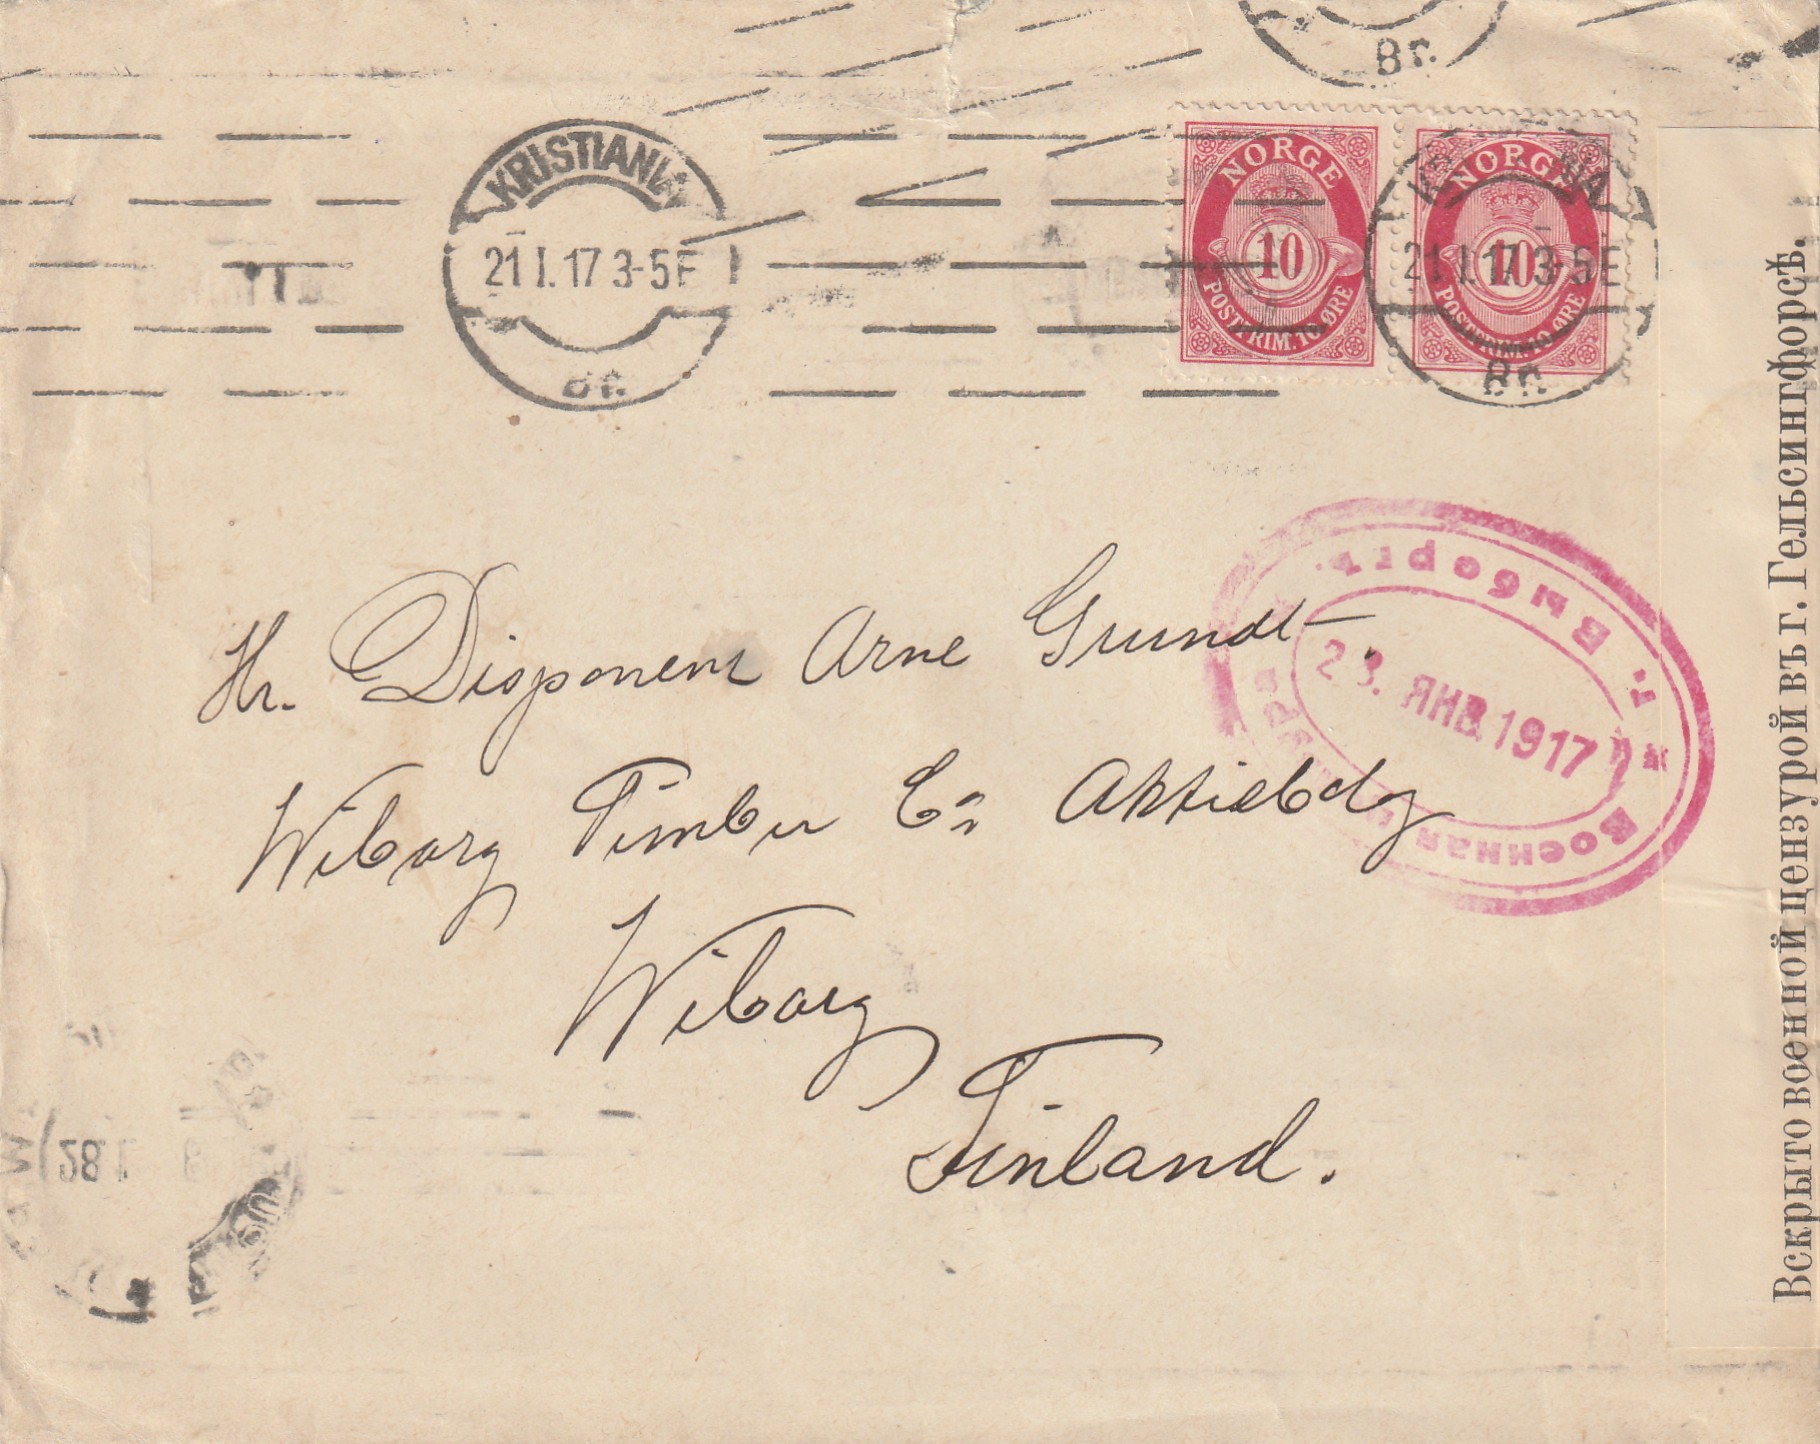 Br.
KRISTIANIA
21 I. 17 3-5 E
Br.
NORGE
10
POSTFRIM. 10 ØRE
NORGE
10
POSTFRIM. 10 ØRE
21 I. 17 3-5 E
Br.
Hr. Disponent Arne Grundt.
Wiborg Timber Co Aktiebolg
Wiborg
Finland.
Выборгъ.
23. ЯНВ 1917
Военная
Вскрыто военной цензурой въ г. Гельсингфорсѣ.
28